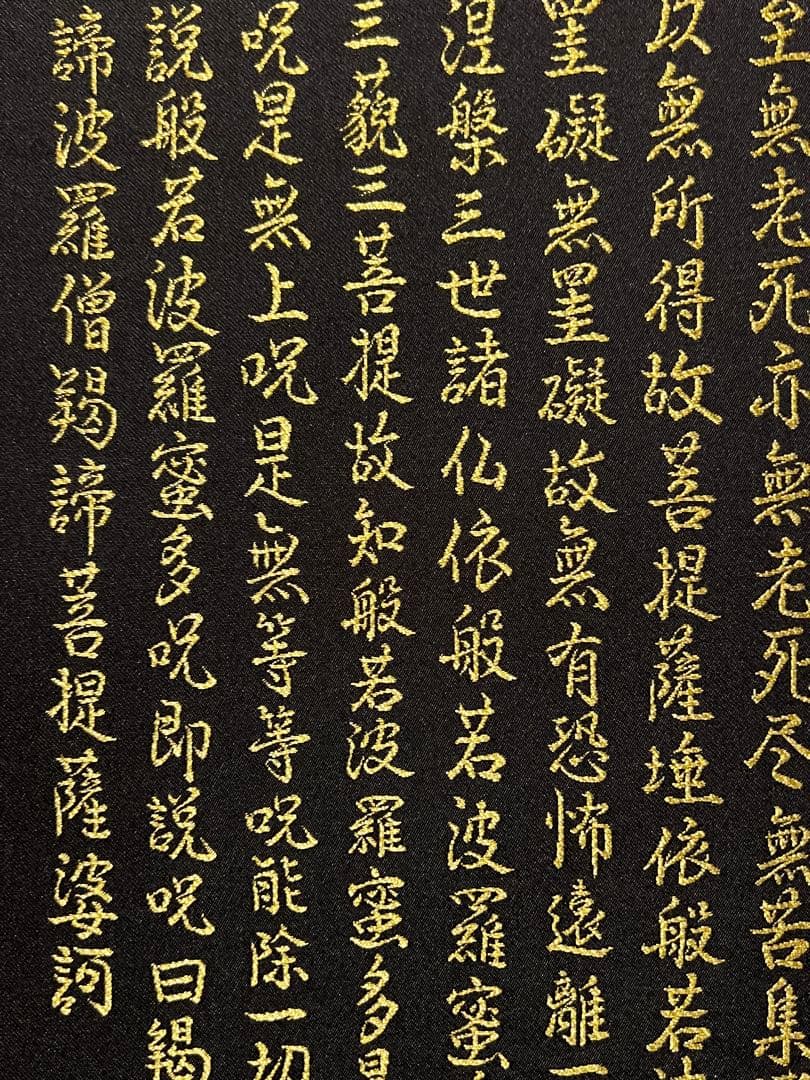 至無老死亦無老死尽無苦集
以無所得故菩提薩埵依般若
罣礙無罣礙故無有恐怖遠離一
涅槃三世諸仏依般若波羅蜜
三藐三菩提故知般若波羅蜜多是
呪是無上呪是無等等呪能除一切
説般若波羅蜜多呪即説呪曰羯
諦波羅僧羯諦菩提薩婆訶